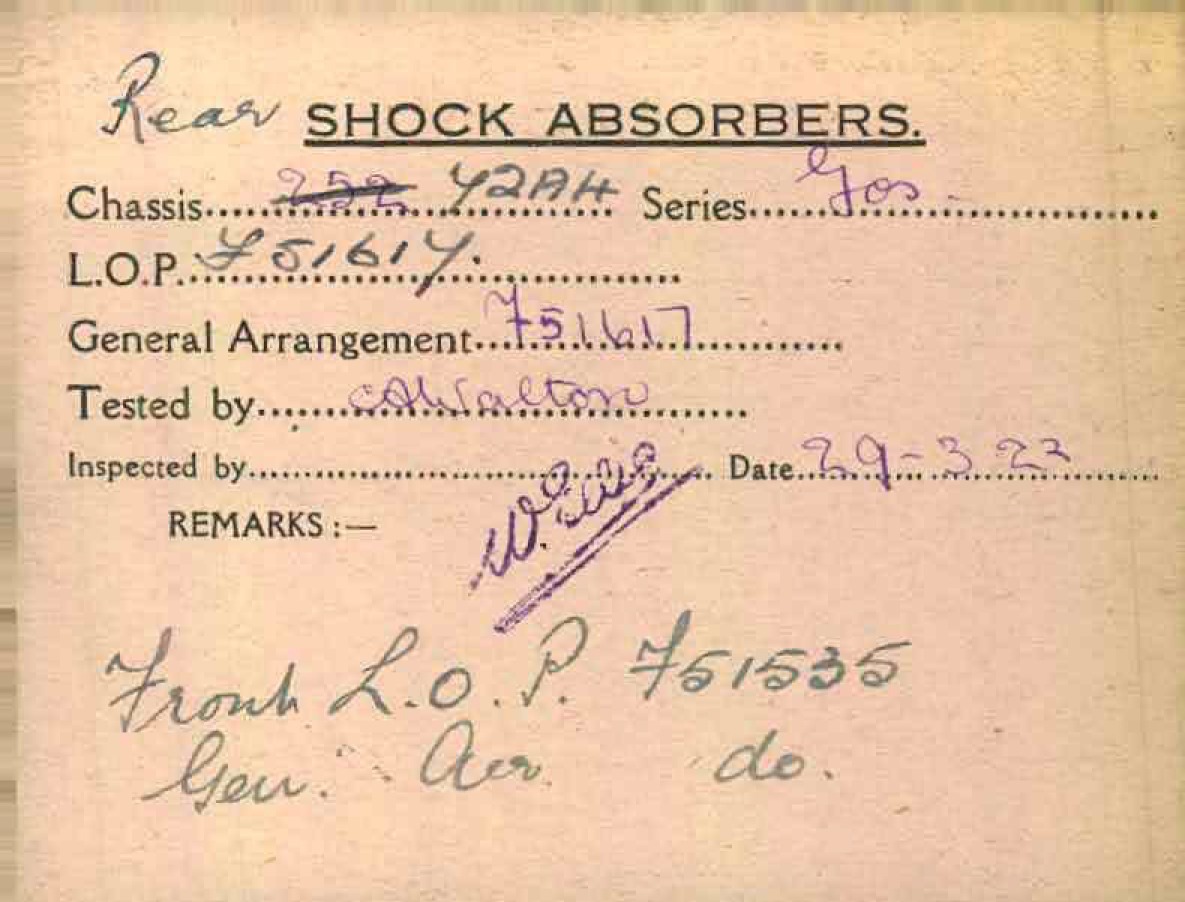 Rear SHOCK ABSORBERS.
Chassis 252 Y2AH Series Gos.
L.O.P. F51617.
General Arrangement F51617
Tested by Walton
Inspected by Date 29-3-22
REMARKS :—
Front L.O.P. F51535
Gen. Arr do.